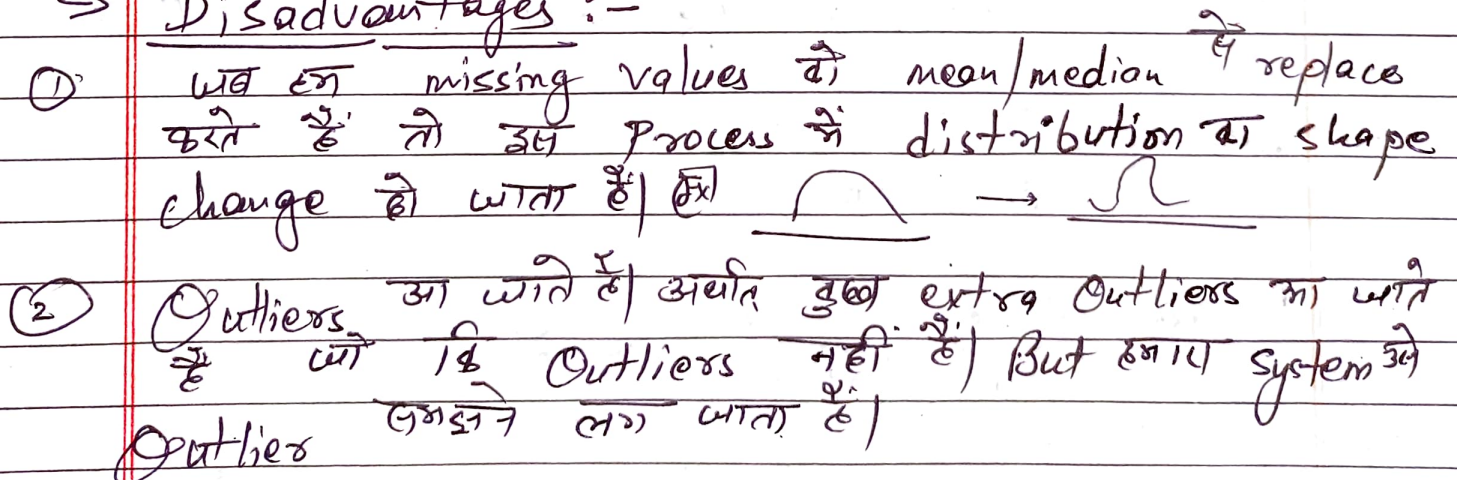 → Disadvantages :-
① जब हम missing values को mean/median से replace
करते हैं तो इस process में distribution का shape
change हो जाता हैं। Ex →
② Outliers आ जाते हैं। अर्थात् कुछ extra Outliers आ जाते
हैं जो कि Outliers नहीं हैं। But हमारा system उसे
Outlier समझने लग जाता हैं।